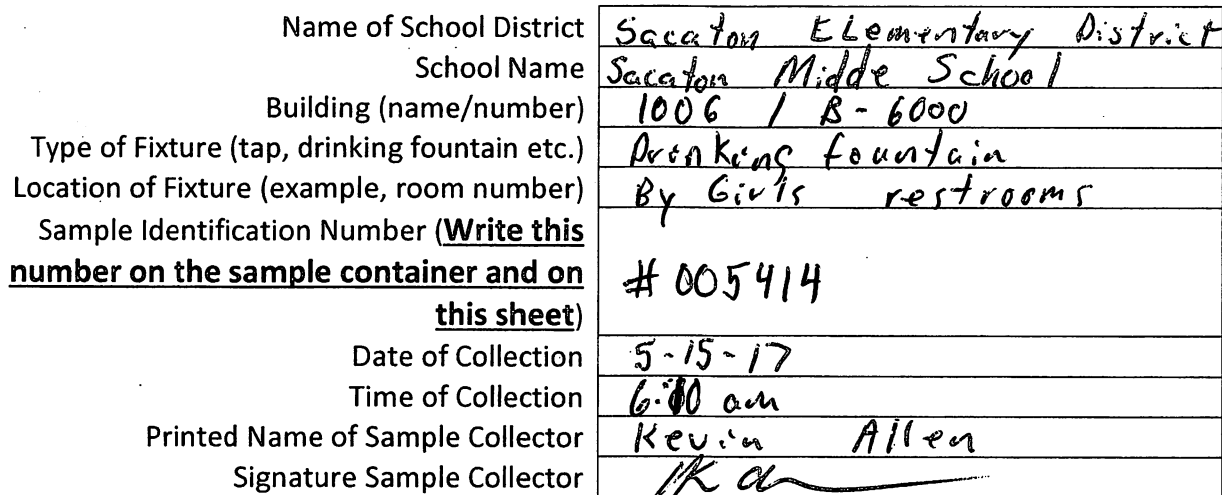 Name of School District Sacaton Elementary District
School Name Sacaton Midde School
Building (name/number) 1006 / B-6000
Type of Fixture (tap, drinking fountain etc.) Drinking fountain
Location of Fixture (example, room number) By Girls restrooms
Sample Identification Number (Write this
number on the sample container and on # 005414
this sheet)
Date of Collection 5-15-17
Time of Collection am
Printed Name of Sample Collector Kevin Allen
Signature Sample Collector